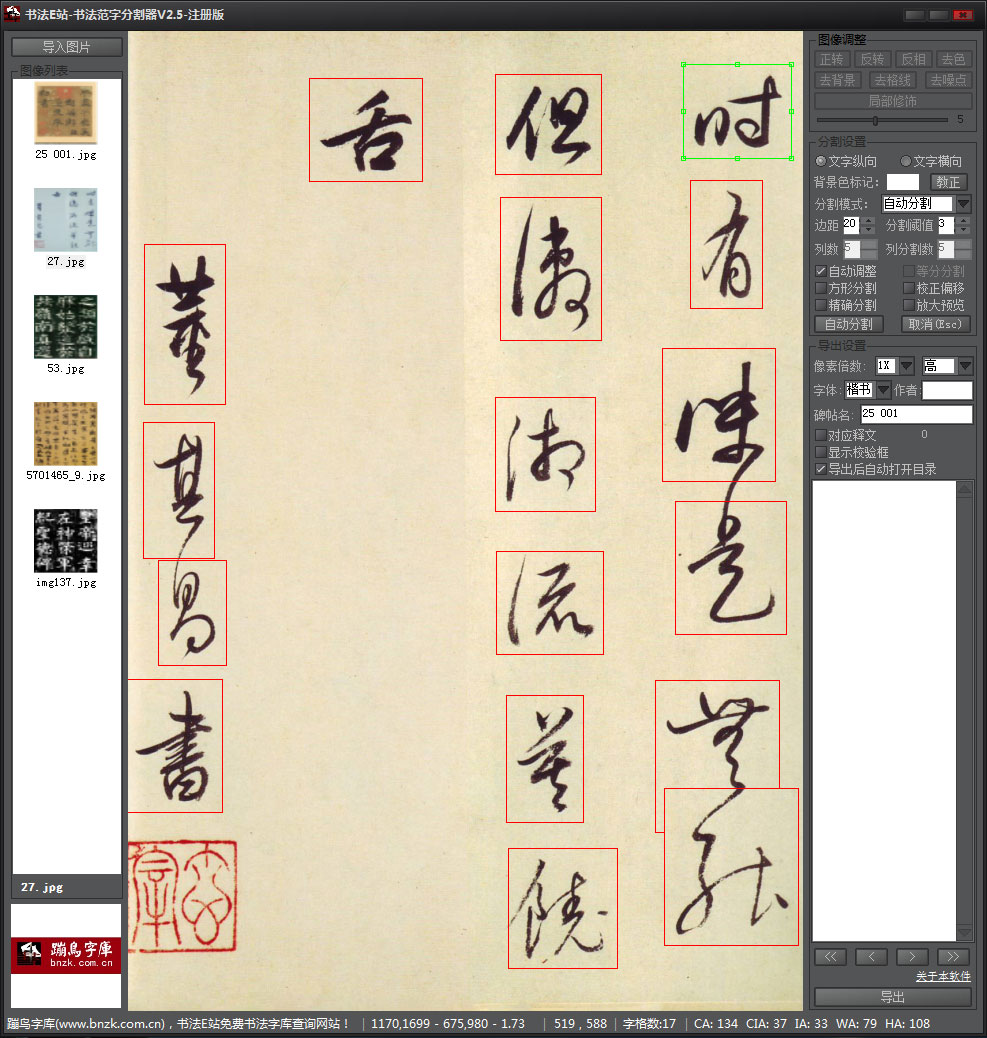 书法E站-书法范字分割器V2.5-注册版
导入图片
图像列表
25 001.jpg
27.jpg
53.jpg
5701465_9.jpg
img137.jpg
27.jpg
蹦鳥字库
bnzk.com.cn
时有
味是
無能
但澈
湘流
莫饒
舌
董其昌書
图像调整
正转 反转 反相 去色
去背景 去格线 去噪点
局部修饰
5
分割设置
文字纵向 文字横向
背景色标记: 教正
分割模式: 自动分割
边距 20 分割阈值 3
列数 5 列分割数 5
自动调整 等分分割
方形分割 校正偏移
精确分割 放大预览
自动分割 取消(Esc)
导出设置
像素倍数: 1X 高
字体: 楷书 作者:
碑帖名: 25 001
对应释文 0
显示校验框
导出后自动打开目录
<< < > >>
关于本软件
导出
蹦鸟字库(www.bnzk.com.cn)，书法E站免费书法字库查询网站！ | 1170,1699 - 675,980 - 1.73 | 519 , 588 | 字格数:17 | CA: 134 CIA: 37 IA: 33 WA: 79 HA: 108